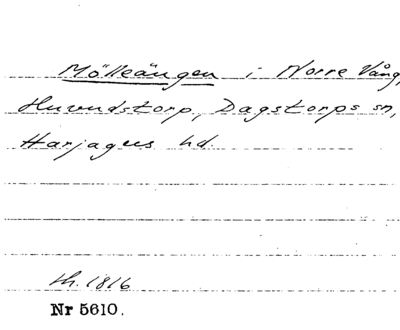 Mölleängen i Norre Vång,
Huvudstorp, Dagstorps sn,
Harjagers hd.
th. 1816
Nr 5610.